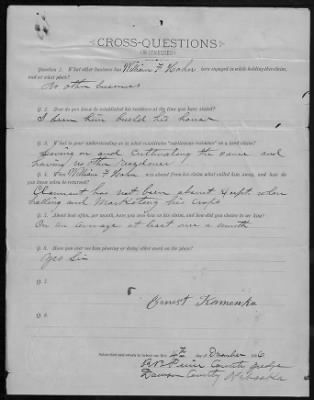 CROSS-QUESTIONS
(WITNESSES)
Question 1. What other business has William F Hahn been engaged in while holding the claim,
and at what place?
No other business
Q. 2. How do you know he established his residence at the time you have stated?
I seen him build his house
Q. 3. What is your understanding as to what constitutes "continuous residence" on a land claim?
Living on and Cultivating the same and
having no other residence
Q. 4. When William F Hahn was absent from his claim what called him away, and how do
you know when he returned?
Claimant has not been absent Except when
hauling and Marketing his crops
Q. 5. About how often, per month, have you seen him on his claim, and how did you chance to see him?
On an average at least once a month
Q. 6. Have you ever seen him plowing or doing other work on the place?
Yes Sir
Q. 7.
Ernest Komenka
Q. 8.
Subscribed and sworn to before me this 4th day of December
County Judge
Dawson County Nebraska